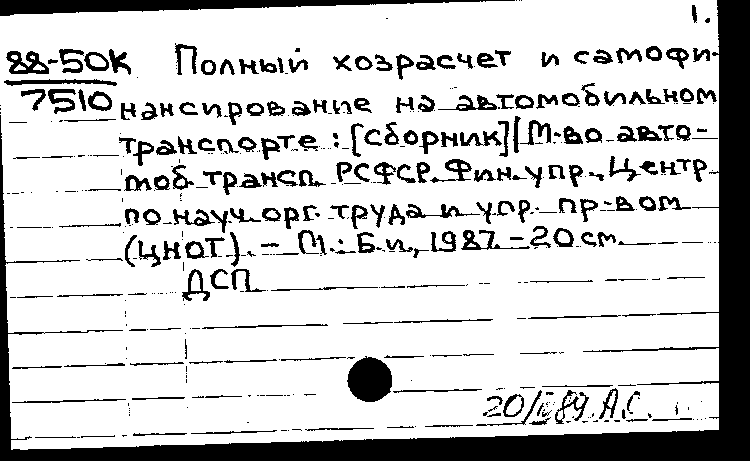 1.
88-50К Полный хозрасчет и самофи-
7510 нансирование на автомобильном
транспорте : [Сборник] / М-во авто-
моб. трансп. РСФСР. Фин. упр., Центр
по науч. орг. труда и упр. пр-вом
(ЦНОТ). – М.: Б.и., 1987. – 20 см.
ДСП
20/II 89 А.С.